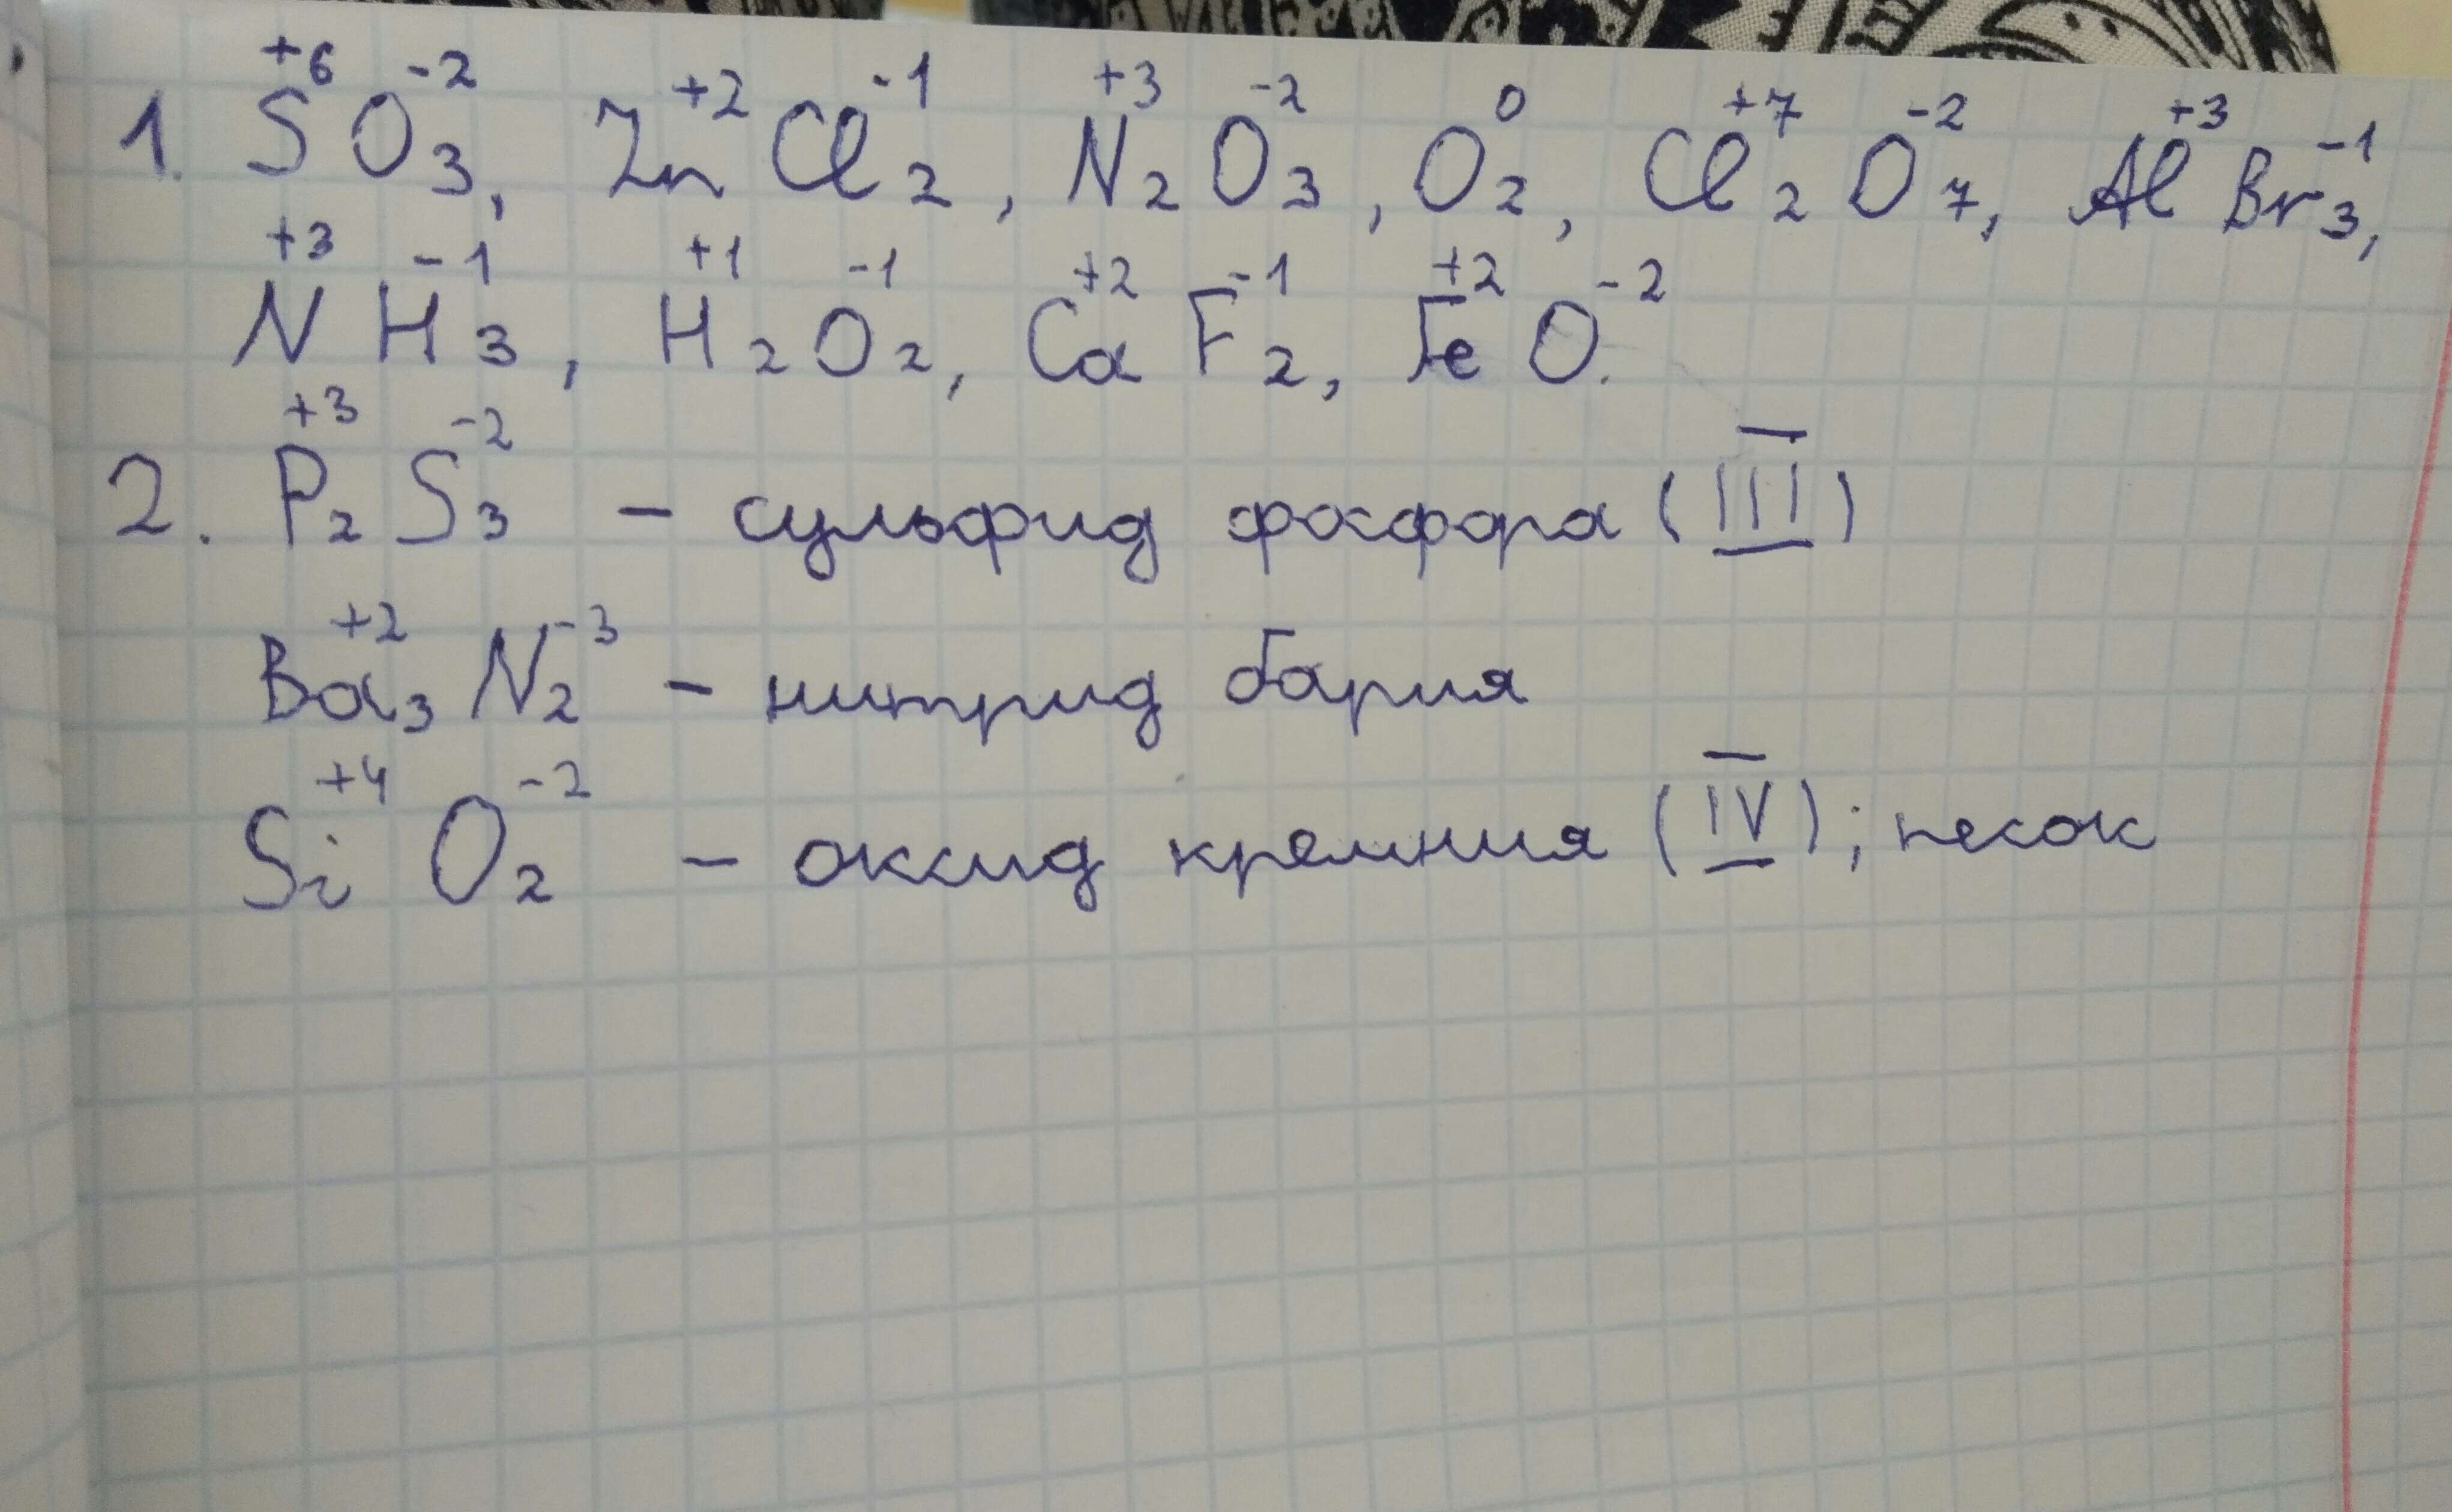 1. S⁺⁶O₃⁻², Zn⁺²Cl₂⁻¹, N₂⁺³O₃⁻², O₂⁰, Cl₂⁺⁷O₇⁻², Al⁺³Br₃⁻¹,
N⁺³H₃⁻¹, H₂⁺¹O₂⁻¹, Ca⁺²F₂⁻¹, Fe⁺²O⁻².
2. P₂⁺³S₃⁻² – сульфид фосфора (III)
Ba₃⁺²N₂⁻³ – нитрид бария
Si⁺⁴O₂⁻² – оксид кремния (IV); песок